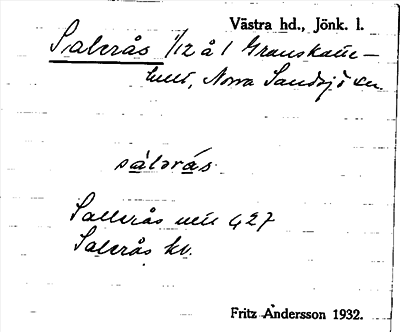 Västra hd., Jönk. l.
Salerås 1/12 å 1 Granskatte-
hult, Norra Sandsjö sn.
sàlərás
Sallerås utu 427
Salerås kv.
Fritz Andersson 1932.